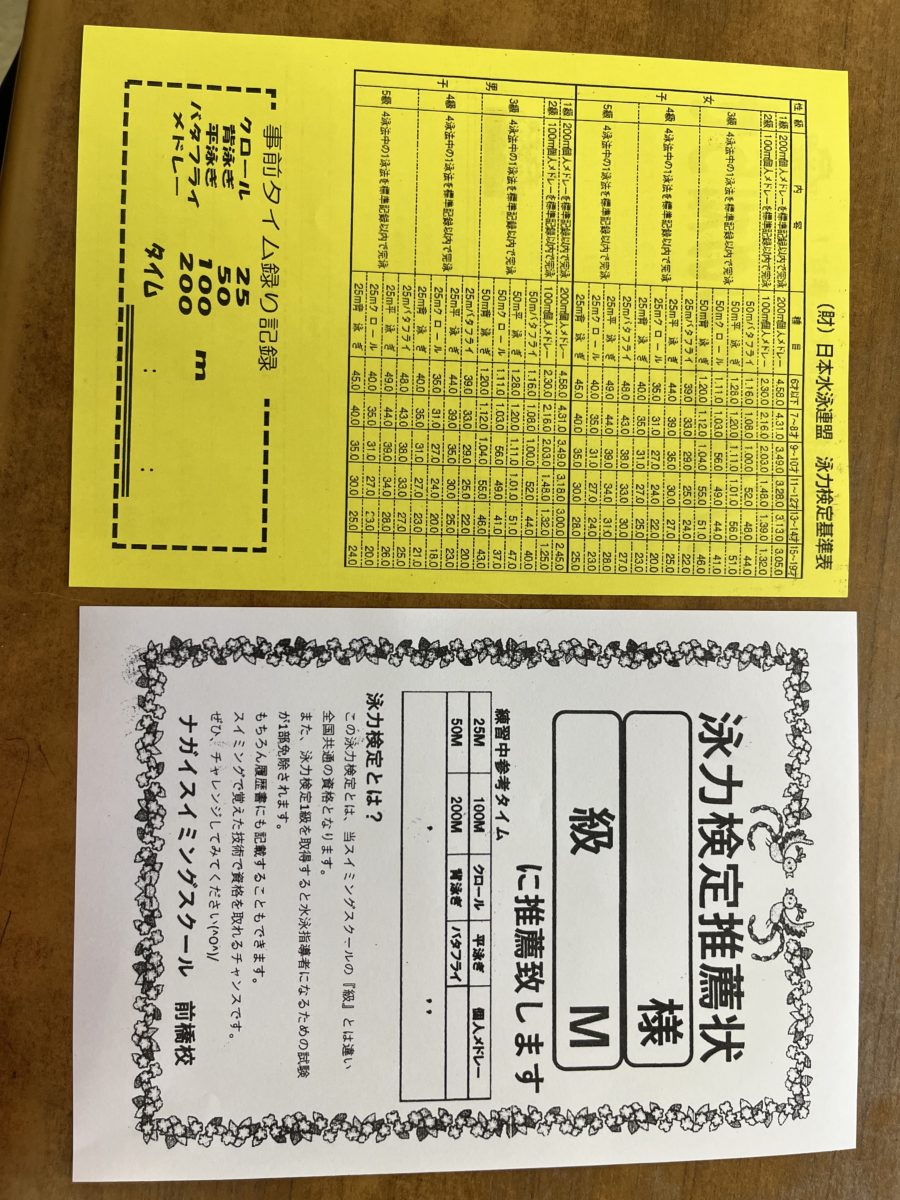 (財)日本水泳連盟 泳力検定基準表
性 級 内容 種目 6才以下 7~8才 9~10才 11~12才 13~14才 15~19才
女子 1級 200m個人メドレーを標準記録以内で完泳 200m個人メドレー 4,58.0 4,31.0 3,49.0 3,28.0 3,13.0 3,05.0
2級 100m個人メドレーを標準記録以内で完泳 100m個人メドレー 2,30.0 2,16.0 2,03.0 1,48.0 1,39.0 1,32.0
3級 4泳法中の1泳法を標準記録以内で完泳 50mバタフライ 1,16.0 1,08.0 1,00.0 52.0 48.0 44.0
50m平泳ぎ 1,28.0 1,20.0 1,11.0 1,01.0 56.0 51.0
50mクロール 1,11.0 1,03.0 56.0 49.0 44.0 41.0
50m背泳ぎ 1,20.0 1,12.0 1,04.0 55.0 51.0 46.0
4級 4泳法中の1泳法を標準記録以内で完泳 25mバタフライ 39.0 33.0 29.0 25.0 24.0 22.0
25m平泳ぎ 44.0 39.0 35.0 30.0 27.0 25.0
25mクロール 35.0 31.0 27.0 24.0 22.0 20.0
25m背泳ぎ 40.0 35.0 31.0 27.0 25.0 23.0
5級 4泳法中の1泳法を標準記録以内で完泳 25mバタフライ 48.0 43.0 38.0 33.0 30.0 27.0
25m平泳ぎ 49.0 44.0 39.0 34.0 31.0 28.0
25mクロール 40.0 35.0 31.0 27.0 24.0 23.0
25m背泳ぎ 45.0 40.0 35.0 30.0 28.0 25.0
男子 1級 200m個人メドレーを標準記録以内で完泳 200m個人メドレー 4,58.0 4,31.0 3,49.0 3,18.0 3,00.0 2,45.0
2級 100m個人メドレーを標準記録以内で完泳 100m個人メドレー 2,30.0 2,16.0 2,03.0 1,48.0 1,32.0 1,25.0
3級 4泳法中の1泳法を標準記録以内で完泳 50mバタフライ 1,16.0 1,08.0 1,00.0 52.0 44.0 40.0
50m平泳ぎ 1,28.0 1,20.0 1,11.0 1,01.0 51.0 47.0
50mクロール 1,11.0 1,03.0 56.0 49.0 41.0 37.0
50m背泳ぎ 1,20.0 1,12.0 1,04.0 55.0 46.0 43.0
4級 4泳法中の1泳法を標準記録以内で完泳 25mバタフライ 39.0 33.0 29.0 25.0 22.0 20.0
25m平泳ぎ 44.0 39.0 35.0 30.0 25.0 23.0
25mクロール 35.0 31.0 27.0 24.0 20.0 18.0
25m背泳ぎ 40.0 35.0 31.0 27.0 23.0 21.0
5級 4泳法中の1泳法を標準記録以内で完泳 25mバタフライ 48.0 43.0 38.0 33.0 27.0 25.0
25m平泳ぎ 49.0 44.0 39.0 34.0 28.0 26.0
25mクロール 40.0 35.0 31.0 27.0 23.0 20.0
25m背泳ぎ 45.0 40.0 35.0 30.0 25.0 24.0
事前タイム録り記録
クロール 25
背泳ぎ 50
平泳ぎ 100 m
バタフライ 200
メドレー
タイム : :
泳力検定推薦状
様
級 M
に推薦致します
練習中参考タイム
25M 100M クロール 平泳ぎ 個人メドレー
50M 200M 背泳ぎ バタフライ
, ,,
泳力検定とは?
この泳力検定とは、当スイミングスクールの『級』とは違い
全国共通の資格となります。
また、泳力検定1級を取得すると水泳指導者になるための試験
が1部免除されます。
もちろん履歴書にも記載することもできます。
スイミングで覚えた技術で資格を取れるチャンスです。
ぜひ、チャレンジしてみてください(^O^)/
ナガイスイミングスクール 前橋校